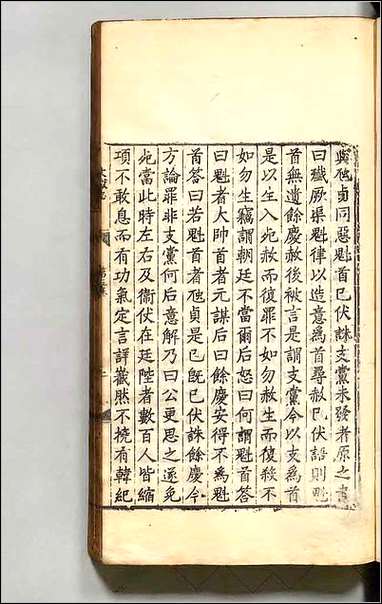 與虺貞同惡魁首已伏誅支黨未發者原之書
曰殲厥渠魁律以造意爲首尋赦已伏語則魁
首無遺餘慶赦後被言是謂支黨今以支爲首
是以生入死赦而復罪不如勿赦生而復殺不
如勿生竊謂朝廷不當爾后怒曰何謂魁首答
曰魁者大帥首者元謀后曰餘慶安得不爲魁
首答曰若魁首者虺貞是已既已伏誅餘慶今
方論罪非支黨何后意解乃曰公更思之遂免
死當此時左右及衞伏在廷陛者數百人皆縮
項不敢息而有功氣定言詳截然不撓有韓紀